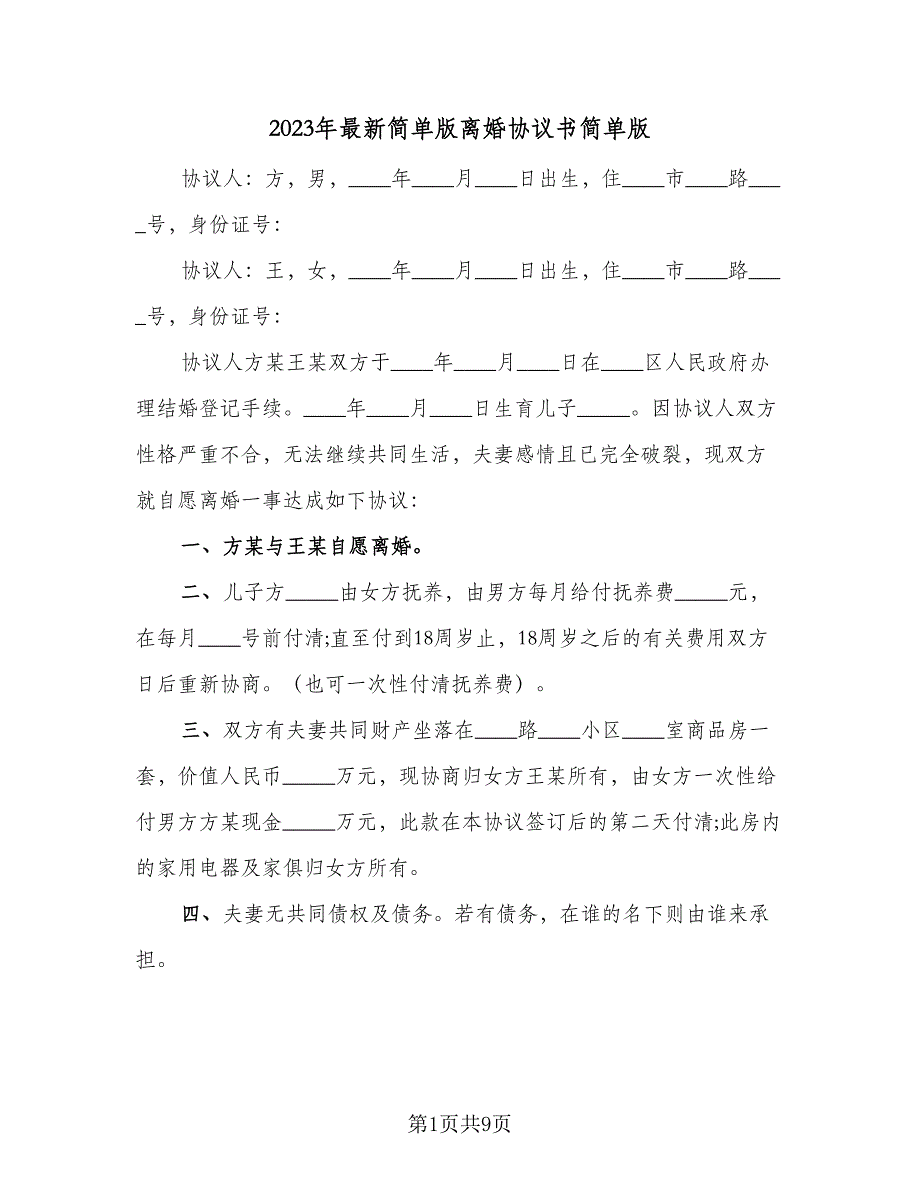 2023年最新简单版离婚协议书简单版
协议人：方，男，____年____月____日出生，住____市____路___
_号，身份证号：
协议人：王，女，____年____月____日出生，住____市____路___
_号，身份证号：
协议人方某王某双方于____年____月____日在____区人民政府办
理结婚登记手续。____年____月____日生育儿子_____。因协议人双方
性格严重不合，无法继续共同生活，夫妻感情且已完全破裂，现双方
就自愿离婚一事达成如下协议：
一、方某与王某自愿离婚。
二、儿子方_____由女方抚养，由男方每月给付抚养费_____元，
在每月____号前付清;直至付到18周岁止，18周岁之后的有关费用双方
日后重新协商。（也可一次性付清抚养费）。
三、双方有夫妻共同财产坐落在____路____小区____室商品房一
套，价值人民币_____万元，现协商归女方王某所有，由女方一次性给
付男方方某现金_____万元，此款在本协议签订后的第二天付清;此房内
的家用电器及家俱归女方所有。
四、夫妻无共同债权及债务。若有债务，在谁的名下则由谁来承
担。
第1页共9页